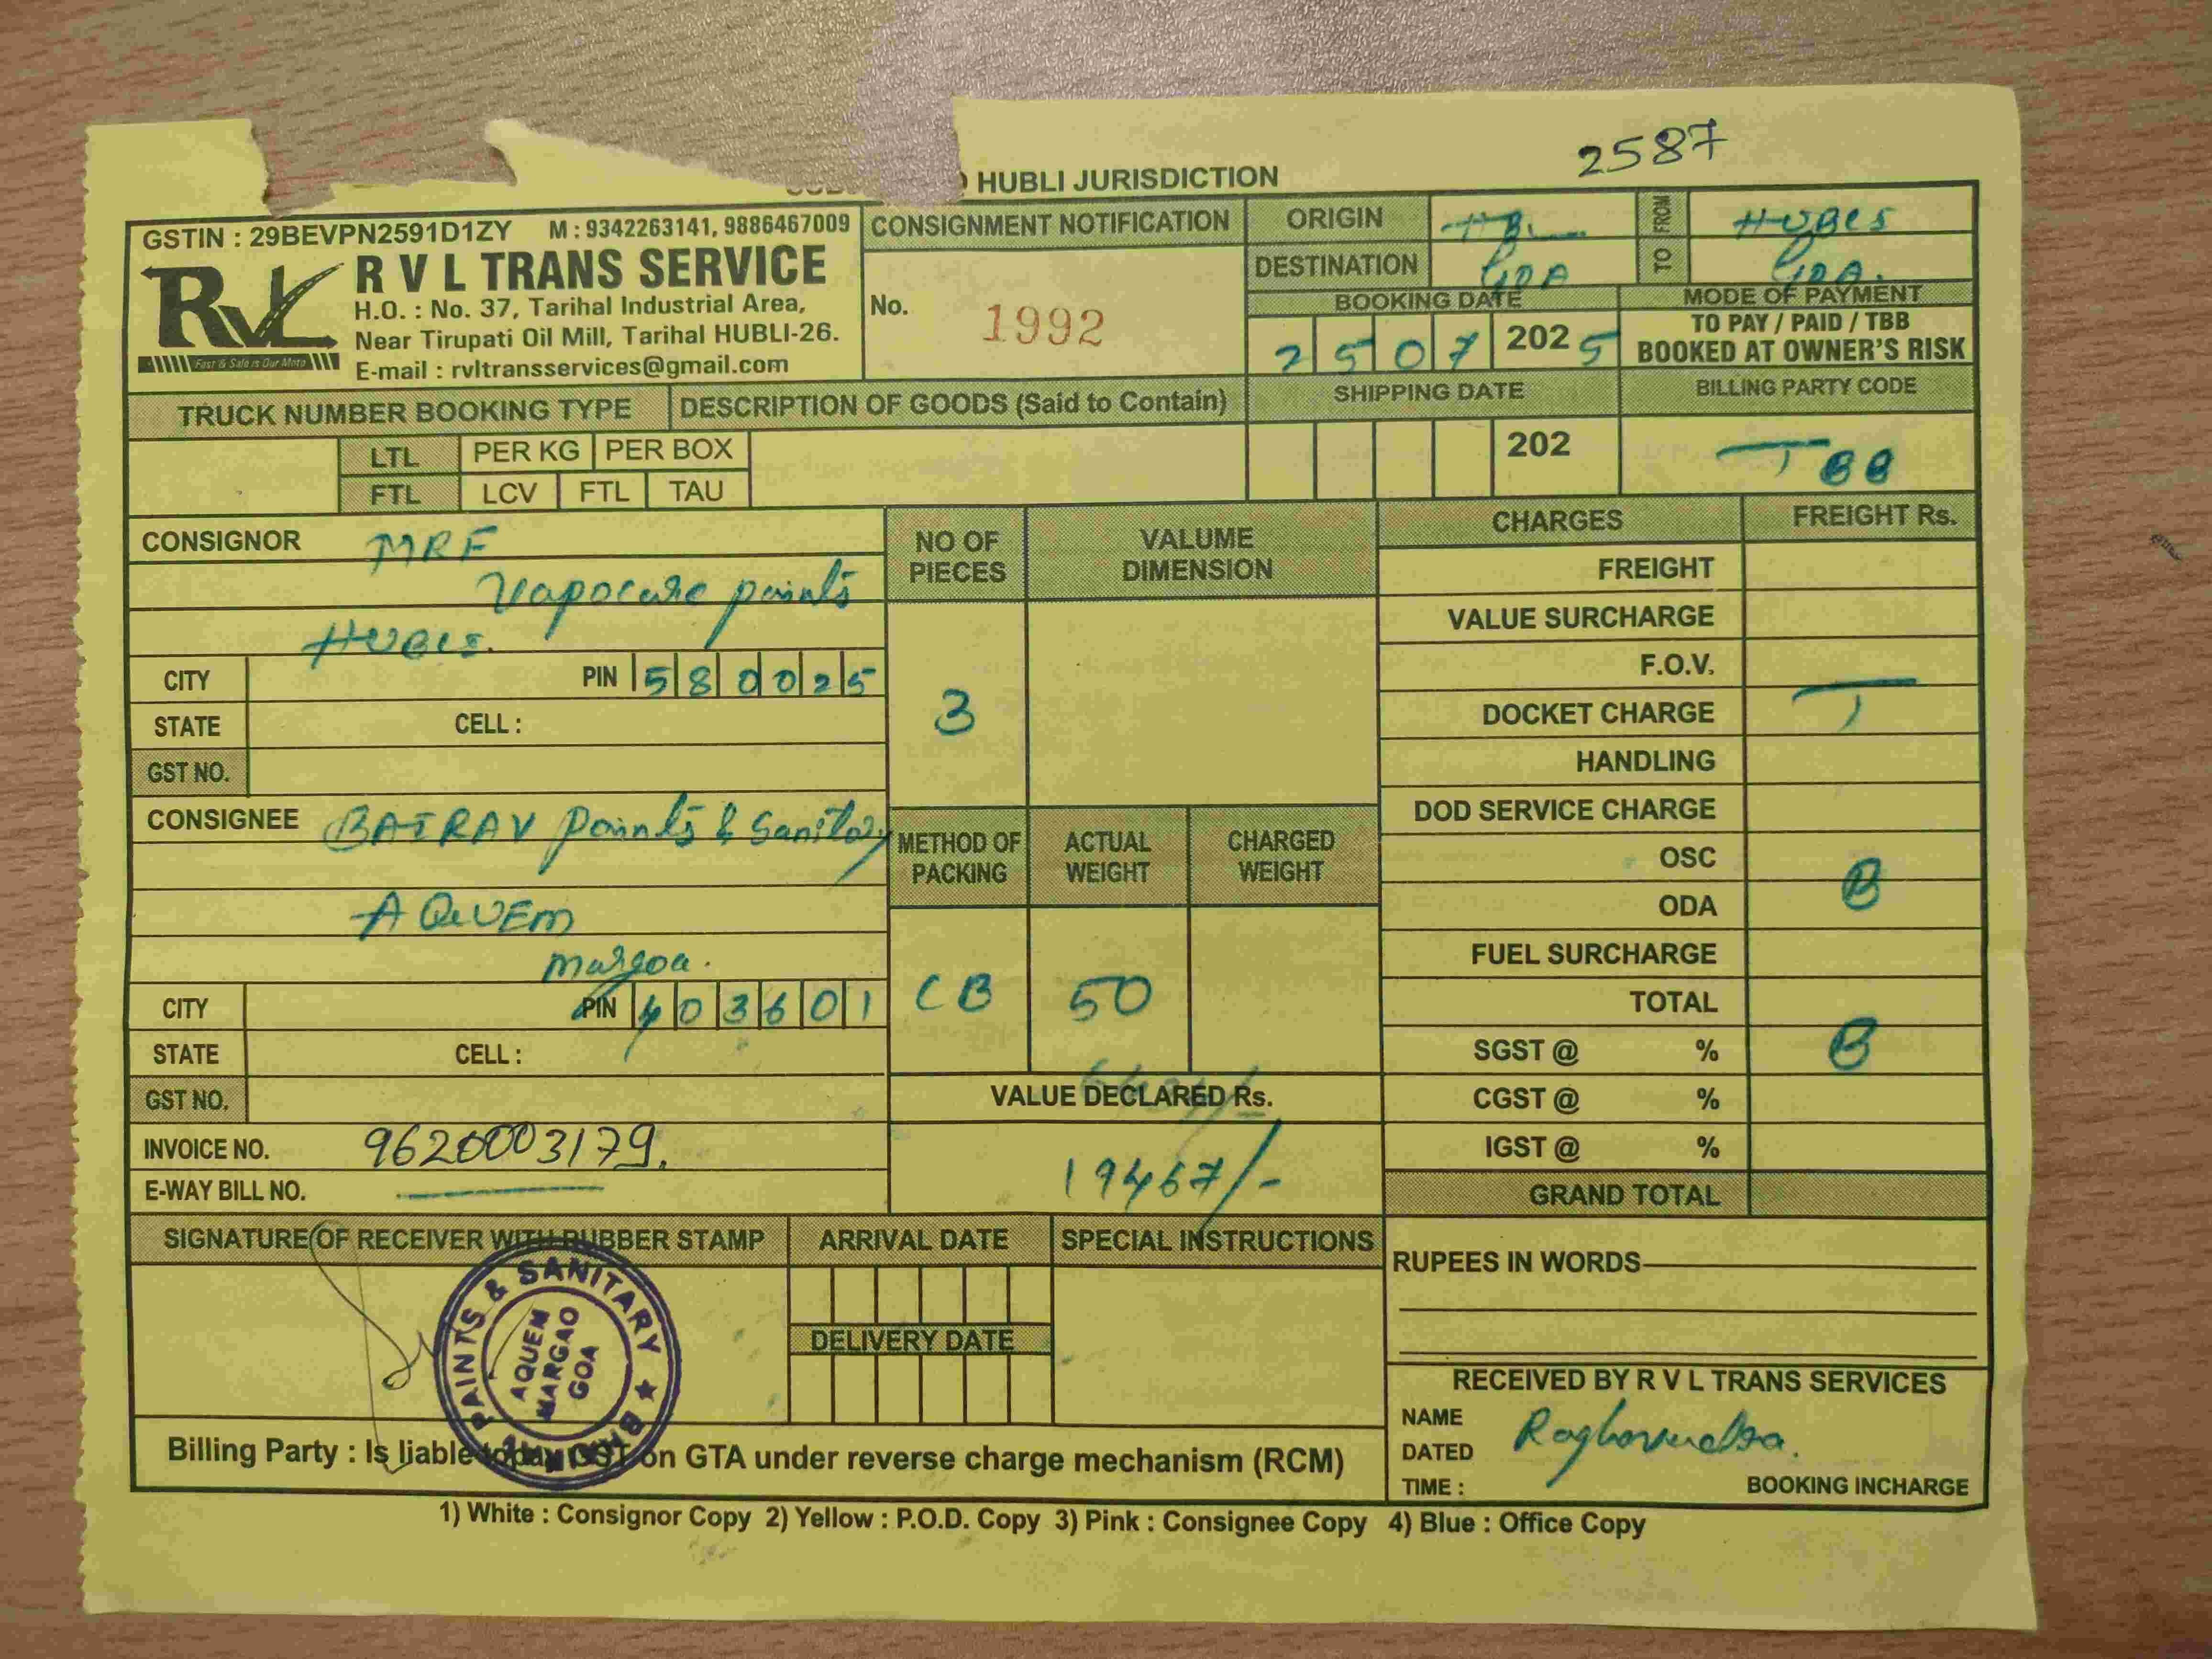 2587
HUBLI JURISDICTION
GSTIN : 29BEVPN2591D1ZY M : 9342263141, 9886467009
RVL
Fast & Safe is Our Moto
R V L TRANS SERVICE
H.O. : No. 37, Tarihal Industrial Area,
Near Tirupati Oil Mill, Tarihal HUBLI-26.
E-mail : rvltransservices@gmail.com
CONSIGNMENT NOTIFICATION
No. 1992
ORIGIN HBL FROM HUBLI
DESTINATION GOA TO GOA.
BOOKING DATE
2 5 0 7 2025
MODE OF PAYMENT
TO PAY / PAID / TBB
BOOKED AT OWNER'S RISK
TRUCK NUMBER BOOKING TYPE
LTL PER KG PER BOX
FTL LCV FTL TAU
DESCRIPTION OF GOODS (Said to Contain)
SHIPPING DATE
202
BILLING PARTY CODE
TBB
CONSIGNOR MRF
Vapocure paints
HUBLI.
CITY PIN 5 8 0 0 2 5
STATE CELL :
GST NO.
CONSIGNEE BAIRAV paints & Sanitary
AQUEM
Margoa.
CITY PIN 4 0 3 6 0 1
STATE CELL :
GST NO.
INVOICE NO. 9620003179.
E-WAY BILL NO.
NO OF PIECES
3
VALUME DIMENSION
METHOD OF PACKING
CB
ACTUAL WEIGHT
50
CHARGED WEIGHT
VALUE DECLARED Rs.
19467/-
CHARGES FREIGHT Rs.
FREIGHT
VALUE SURCHARGE
F.O.V.
DOCKET CHARGE T
HANDLING
DOD SERVICE CHARGE
OSC
ODA B
FUEL SURCHARGE
TOTAL
SGST @ % B
CGST @ %
IGST @ %
GRAND TOTAL
SIGNATURE OF RECEIVER WITH RUBBER STAMP
PAINTS & SANITARY ★
AQUEM
MARGAO
GOA
ARRIVAL DATE
DELIVERY DATE
SPECIAL INSTRUCTIONS
RUPEES IN WORDS
RECEIVED BY R V L TRANS SERVICES
NAME
DATED
TIME :
BOOKING INCHARGE
Billing Party : Is liable to pay GST on GTA under reverse charge mechanism (RCM)
1) White : Consignor Copy 2) Yellow : P.O.D. Copy 3) Pink : Consignee Copy 4) Blue : Office Copy